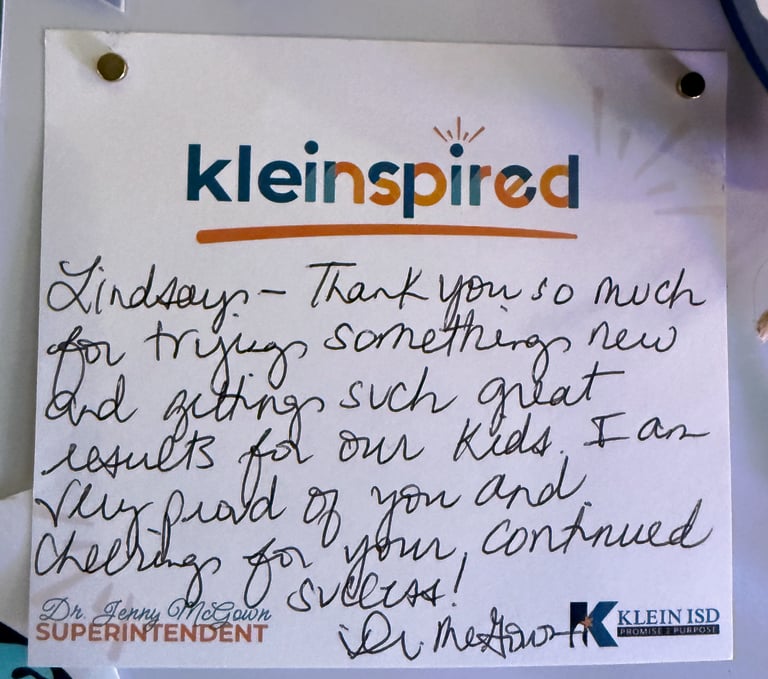 kleinspired
Lindsay - Thank you so much
for trying something new
and getting such great
results for our kids. I am
very proud of you and
cheering for your continued
success!
Dr. Jenny McGown
SUPERINTENDENT
Dr. McGown
K KLEIN ISD
PROMISE 2 PURPOSE